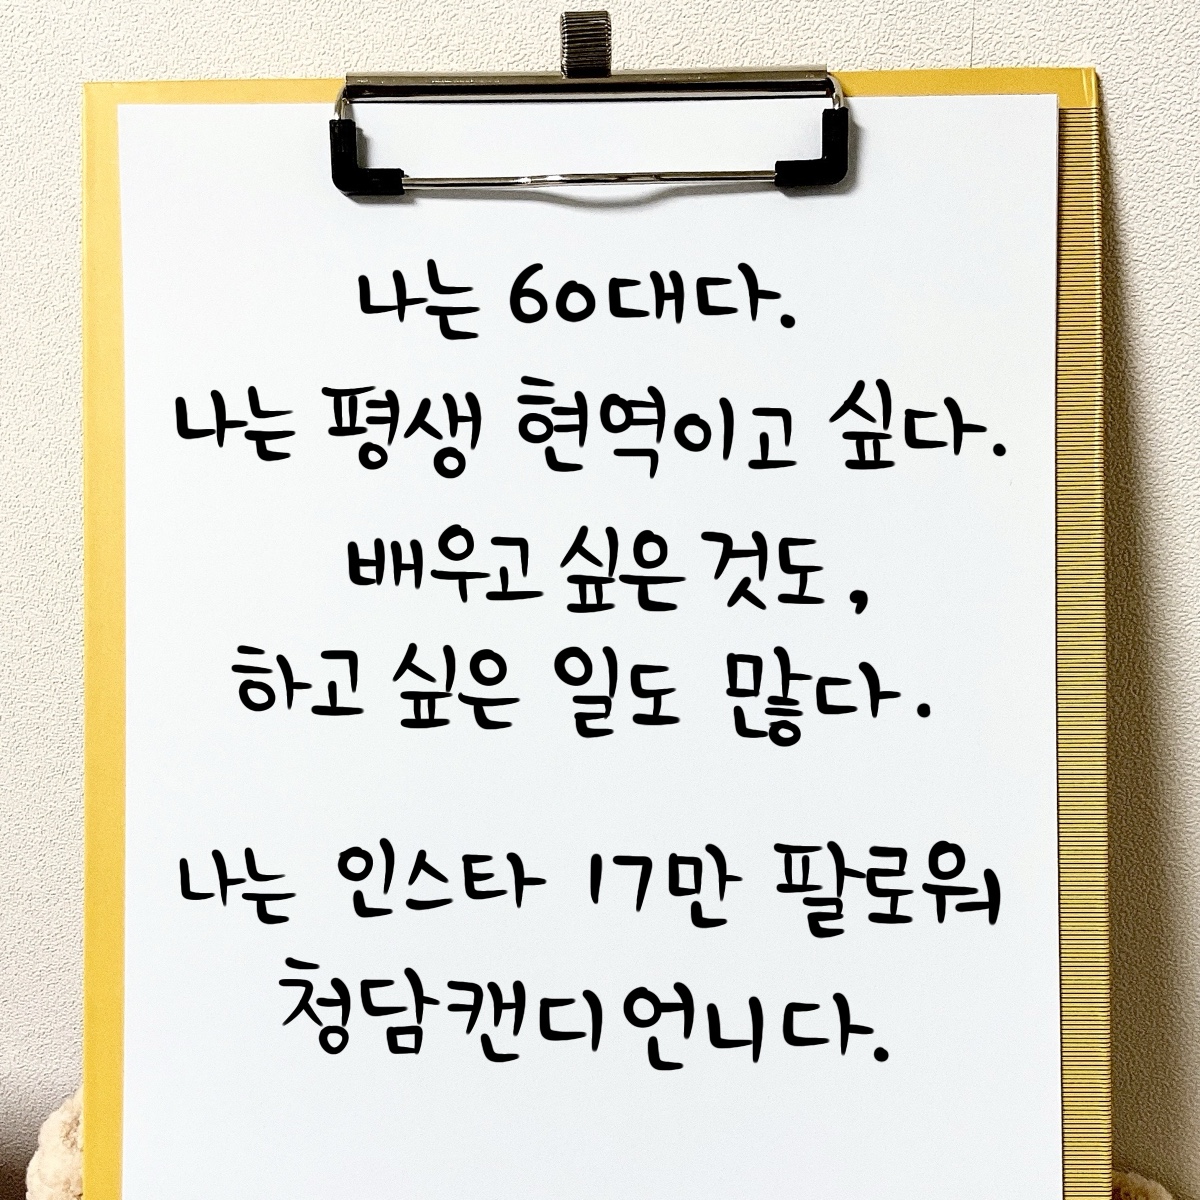 나는 60대다.
나는 평생 현역이고 싶다.
배우고 싶은 것도,
하고 싶은 일도 많다.
나는 인스타 17만 팔로워
청담캔디언니다.